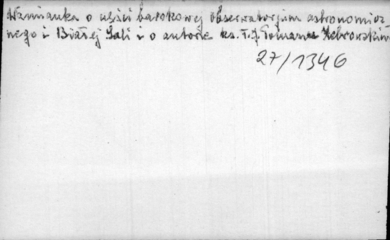 Wzmianka o części barokowej obserwatorjum astronomicz
nego i Białej Sali i o autorze ks. T. Żebrowskim
27/1346